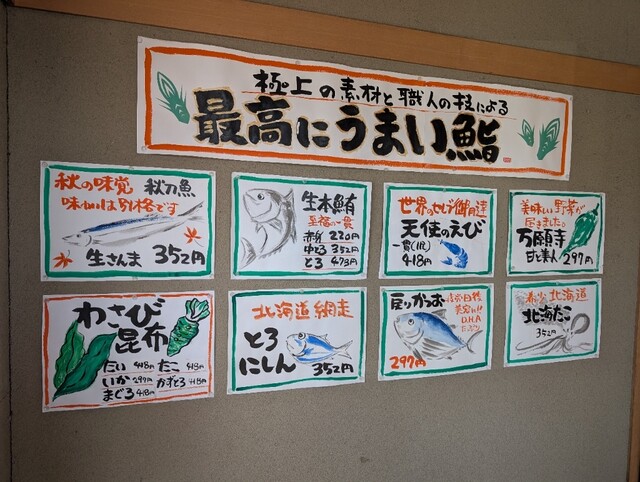 極上の素材と職人の技による
最高にうまい鮨
秋の味覚 秋刀魚
味わいは別格です
生さんま 352円
生本鮪
至福の一貫
赤身 220円
中とろ 352円
とろ 473円
世界のセレブ御用達
天使のえび
一貫(1枚)
418円
美味しい野菜が
届きました。
万願寺
甘と美人 297円
わさび
昆布
たい 418円 たこ 418円
いか 297円 かずとろ 418円
まぐろ 418円
北海道 網走
とろ
にしん 352円
戻りかつお
美容に!!
D.H.A
297円
北海道
北海だこ
352円